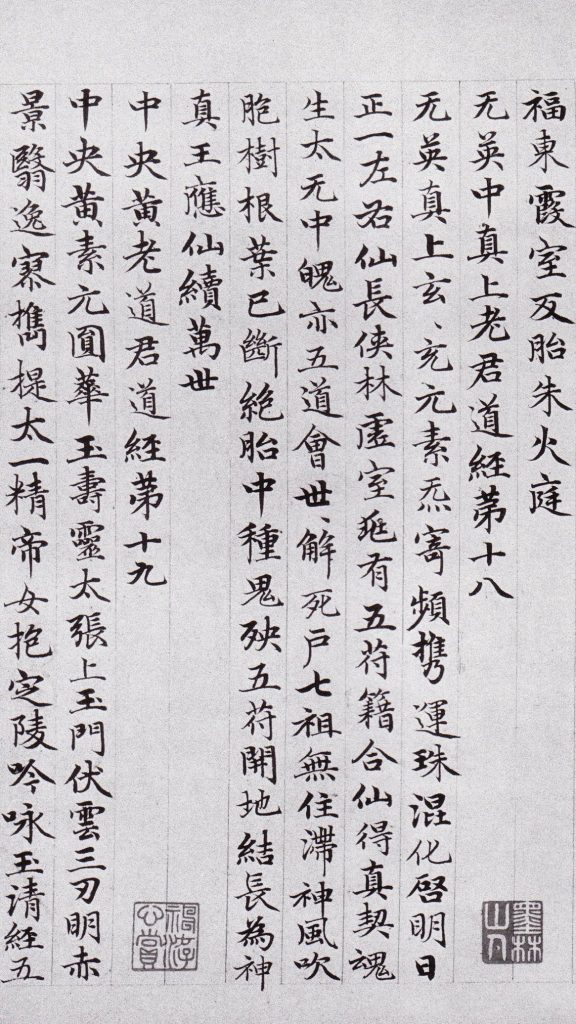 福東霞室反胎朱火庭
无英中真上老君道經第十八
无英真上玄、充元素炁寄頻攜運珠混化啓明日
正一左右仙長俠林虛室延有五苻籍合仙得真契魂
生太无中魄亦五道會世、解死戶七祖無住滯神風吹
胞樹根葉已斷絕胎中種鬼殃五苻開地結長為神
真王應仙續萬世
中央黃老道君道經第十九
中央黃素元圓華玉壽靈太張上玉門伏雲三刃明赤
景翳逸寥攜提太一精帝女抱定陵吟咏玉清經五
墨林山人